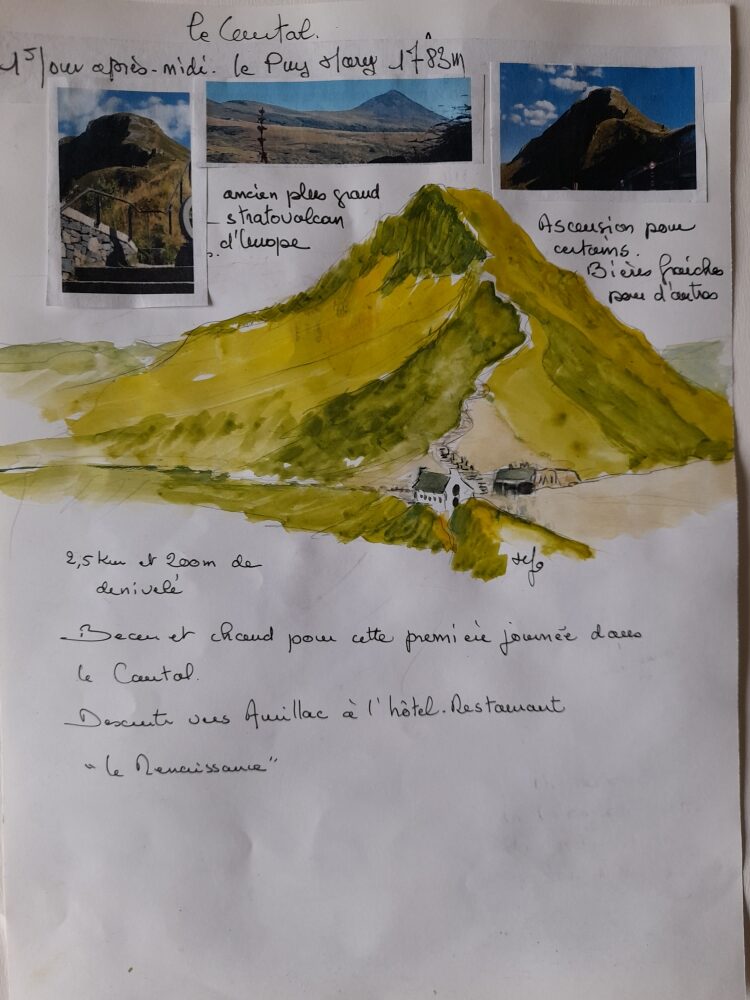 le Cantal.
1er Jour après-midi. le Puy Mary 1783m
ancien plus grand
stratovolcan
d'Europe
Ascension pour
certains.
Bières fraîches
pour d'autres
2,5 km et 200m de
denivelé
Beau et chaud pour cette première journée dans
le Cantal.
Descente vers Aurillac à l'hôtel-Restaurant
"le Renaissance"